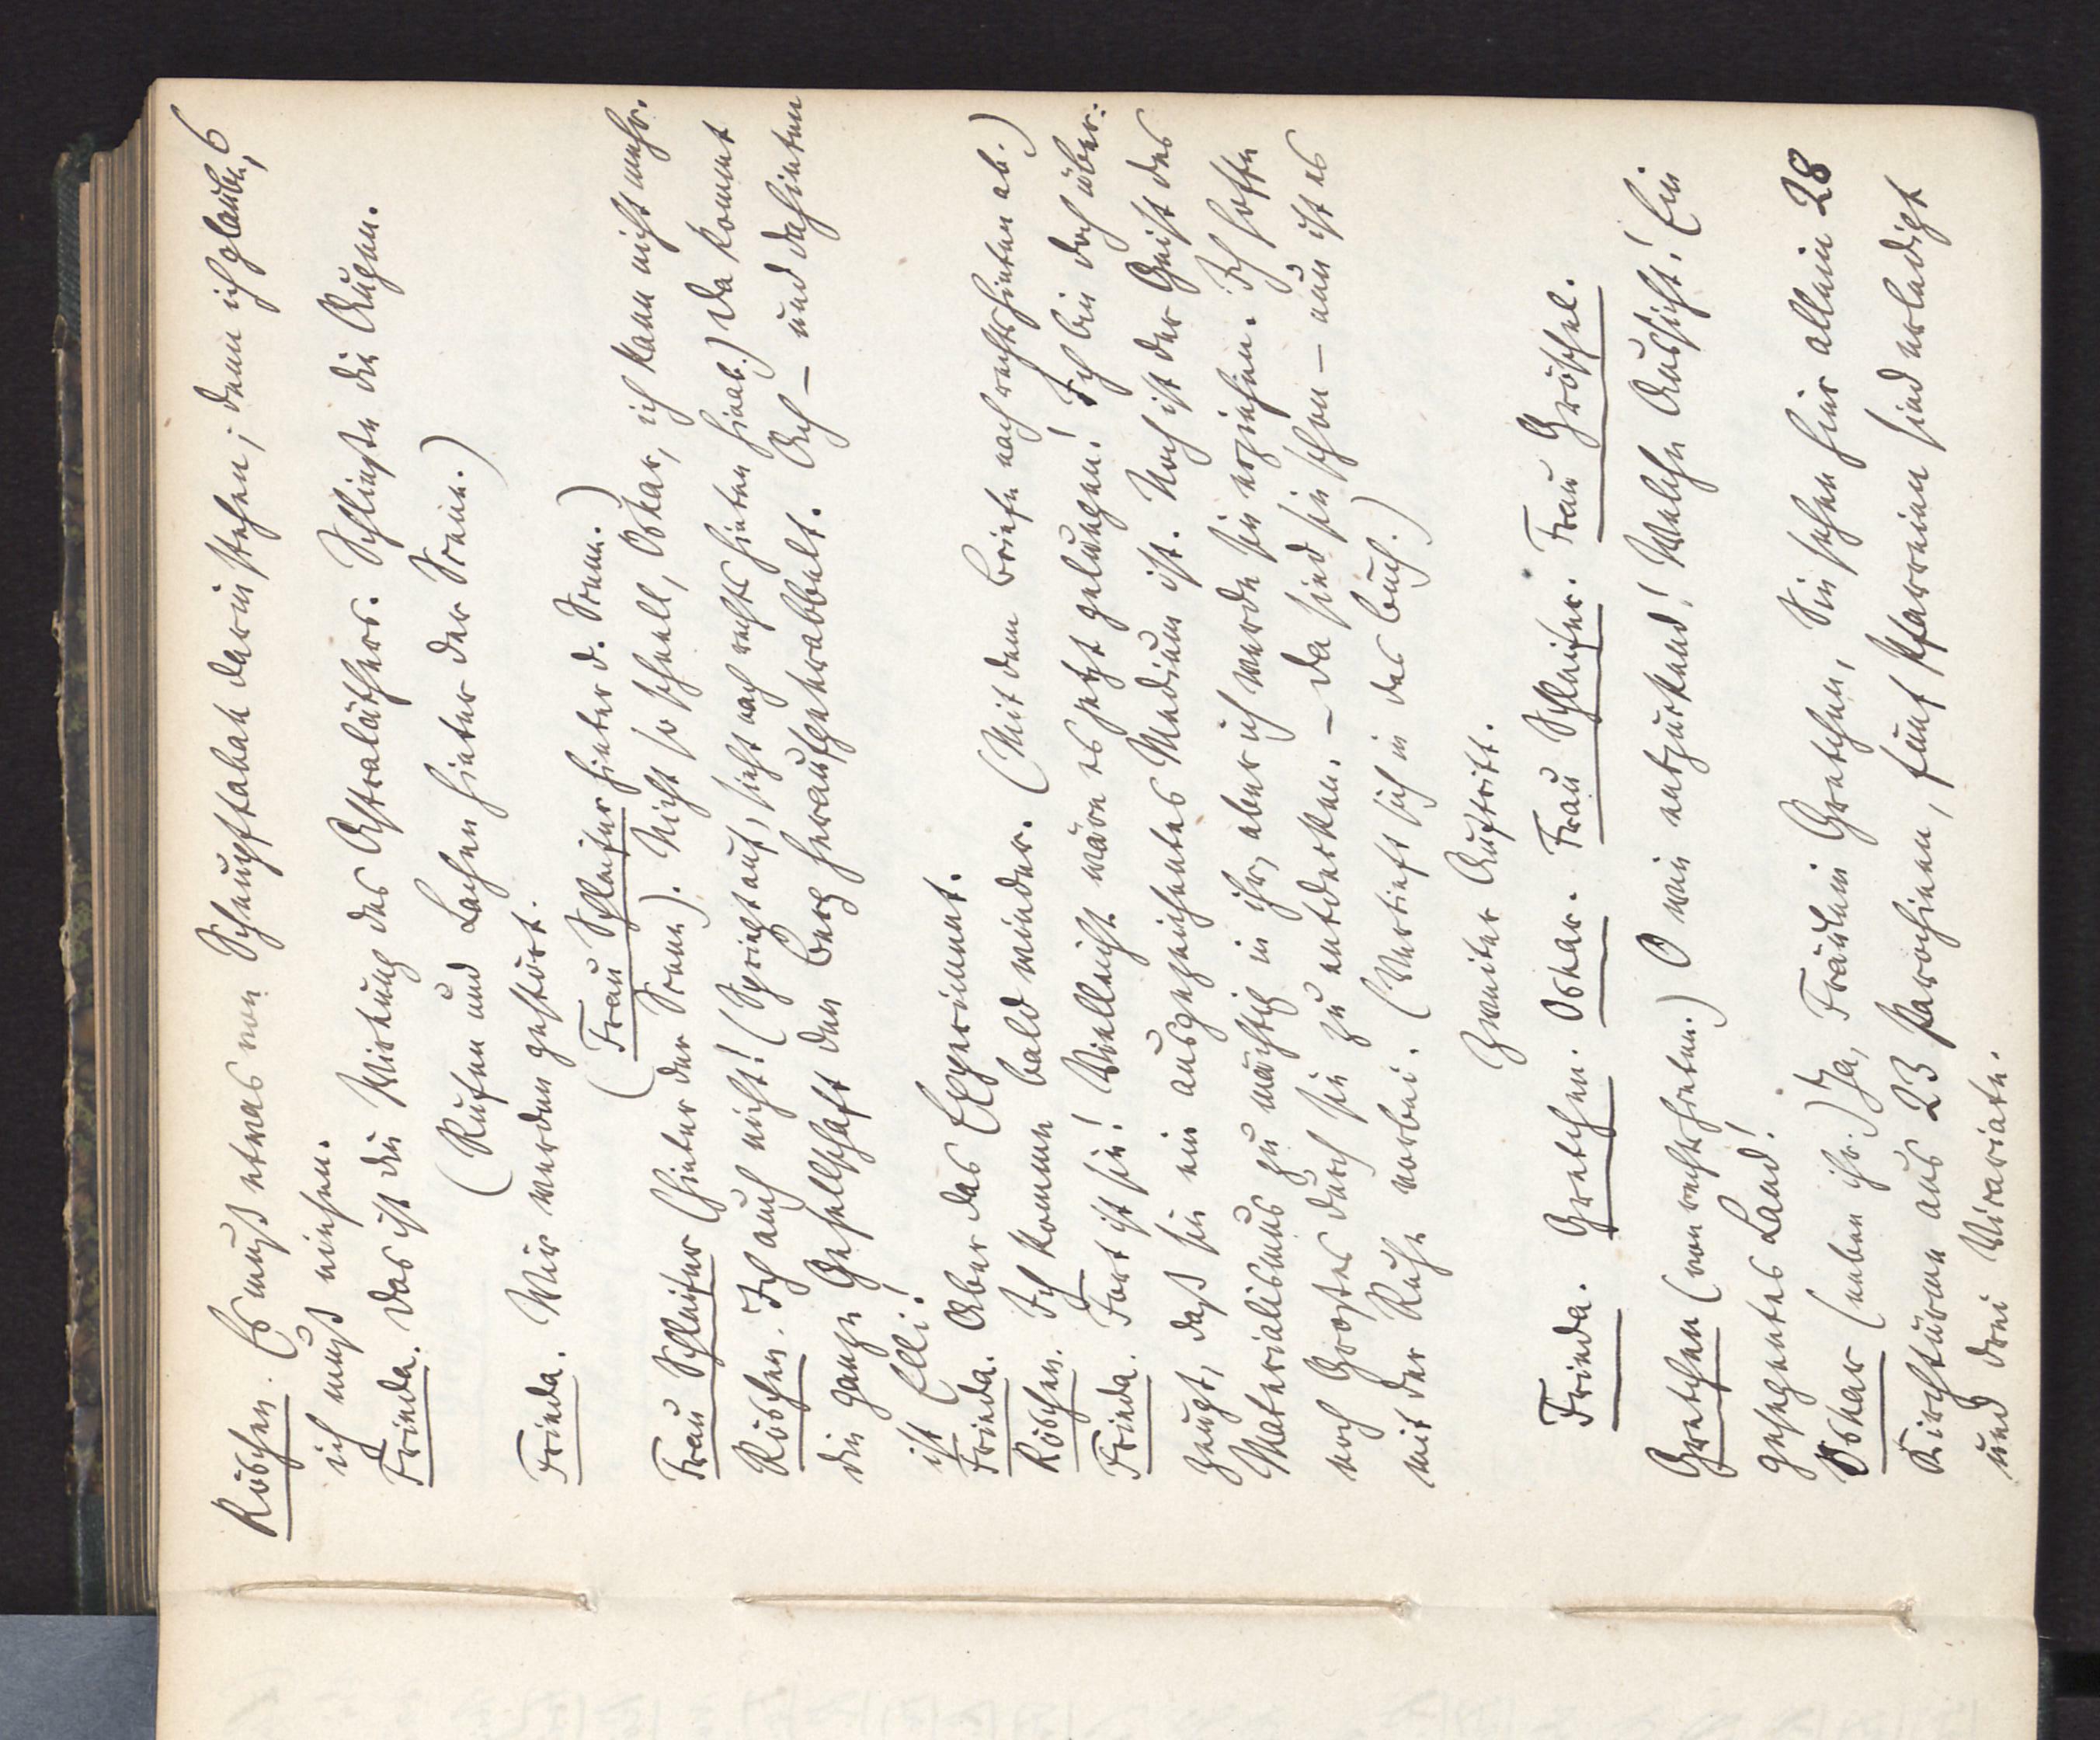 6
Röschen. Es muß etwas von Schnupftabak darin stehen; denn ich glaube,
ich muß niesen.
Frieda. Das ist die Wirkung des Astraläthers. Schließe die Augen.
(Rufen und Lachen hinter der Scene.)
Frieda. Wir werden gestört.
(Frau Schleifer hinter d. Scene.)
Frau Schleifer (hinter der Scene). Nicht so schnell, Oskar, ich kann nicht mehr.
Röschen. Ich auch nicht! (Springt auf, sieht nach rechts hinten hinab.) Da kommt
die ganze Gesellschaft den Berg heraufgekrabbelt. Ach – und dahinten
ist Elli!
Frieda. Aber das Experiment.
Röschen. Ich komme bald wieder. (Mit dem Briefe nach rechts hinten ab.)
Frieda. Fort ist sie! Vielleicht wäre es jetzt gelungen! Ich bin doch über:
zeugt, daß sie ein ausgezeichnetes Medium ist. Noch ist der Geist des
Materialismus zu mächtig in ihr, aber ich werde sie erziehen. Ich hoffe
noch Großes durch sie zu entdecken. – Da sind sie schon – nun ist es
mit der Ruhe vorbei. (Vertieft sich in das Buch.)
Zweiter Auftritt.
Frieda. Gretchen. Oskar. Frau Schleifer. Frau Gröschel.
Gretchen (von rechts hinten.) O wie entzückend! Welche Aussicht! Ein
gesegnetes Land!
Oskar (neben ihr.) Ja, Fräulein Gretchen, Sie sehen hier allein 28
Kirchtürme aus 23 Parochieen, fünf Pfarreien sind erledigt
und drei Vikariate.